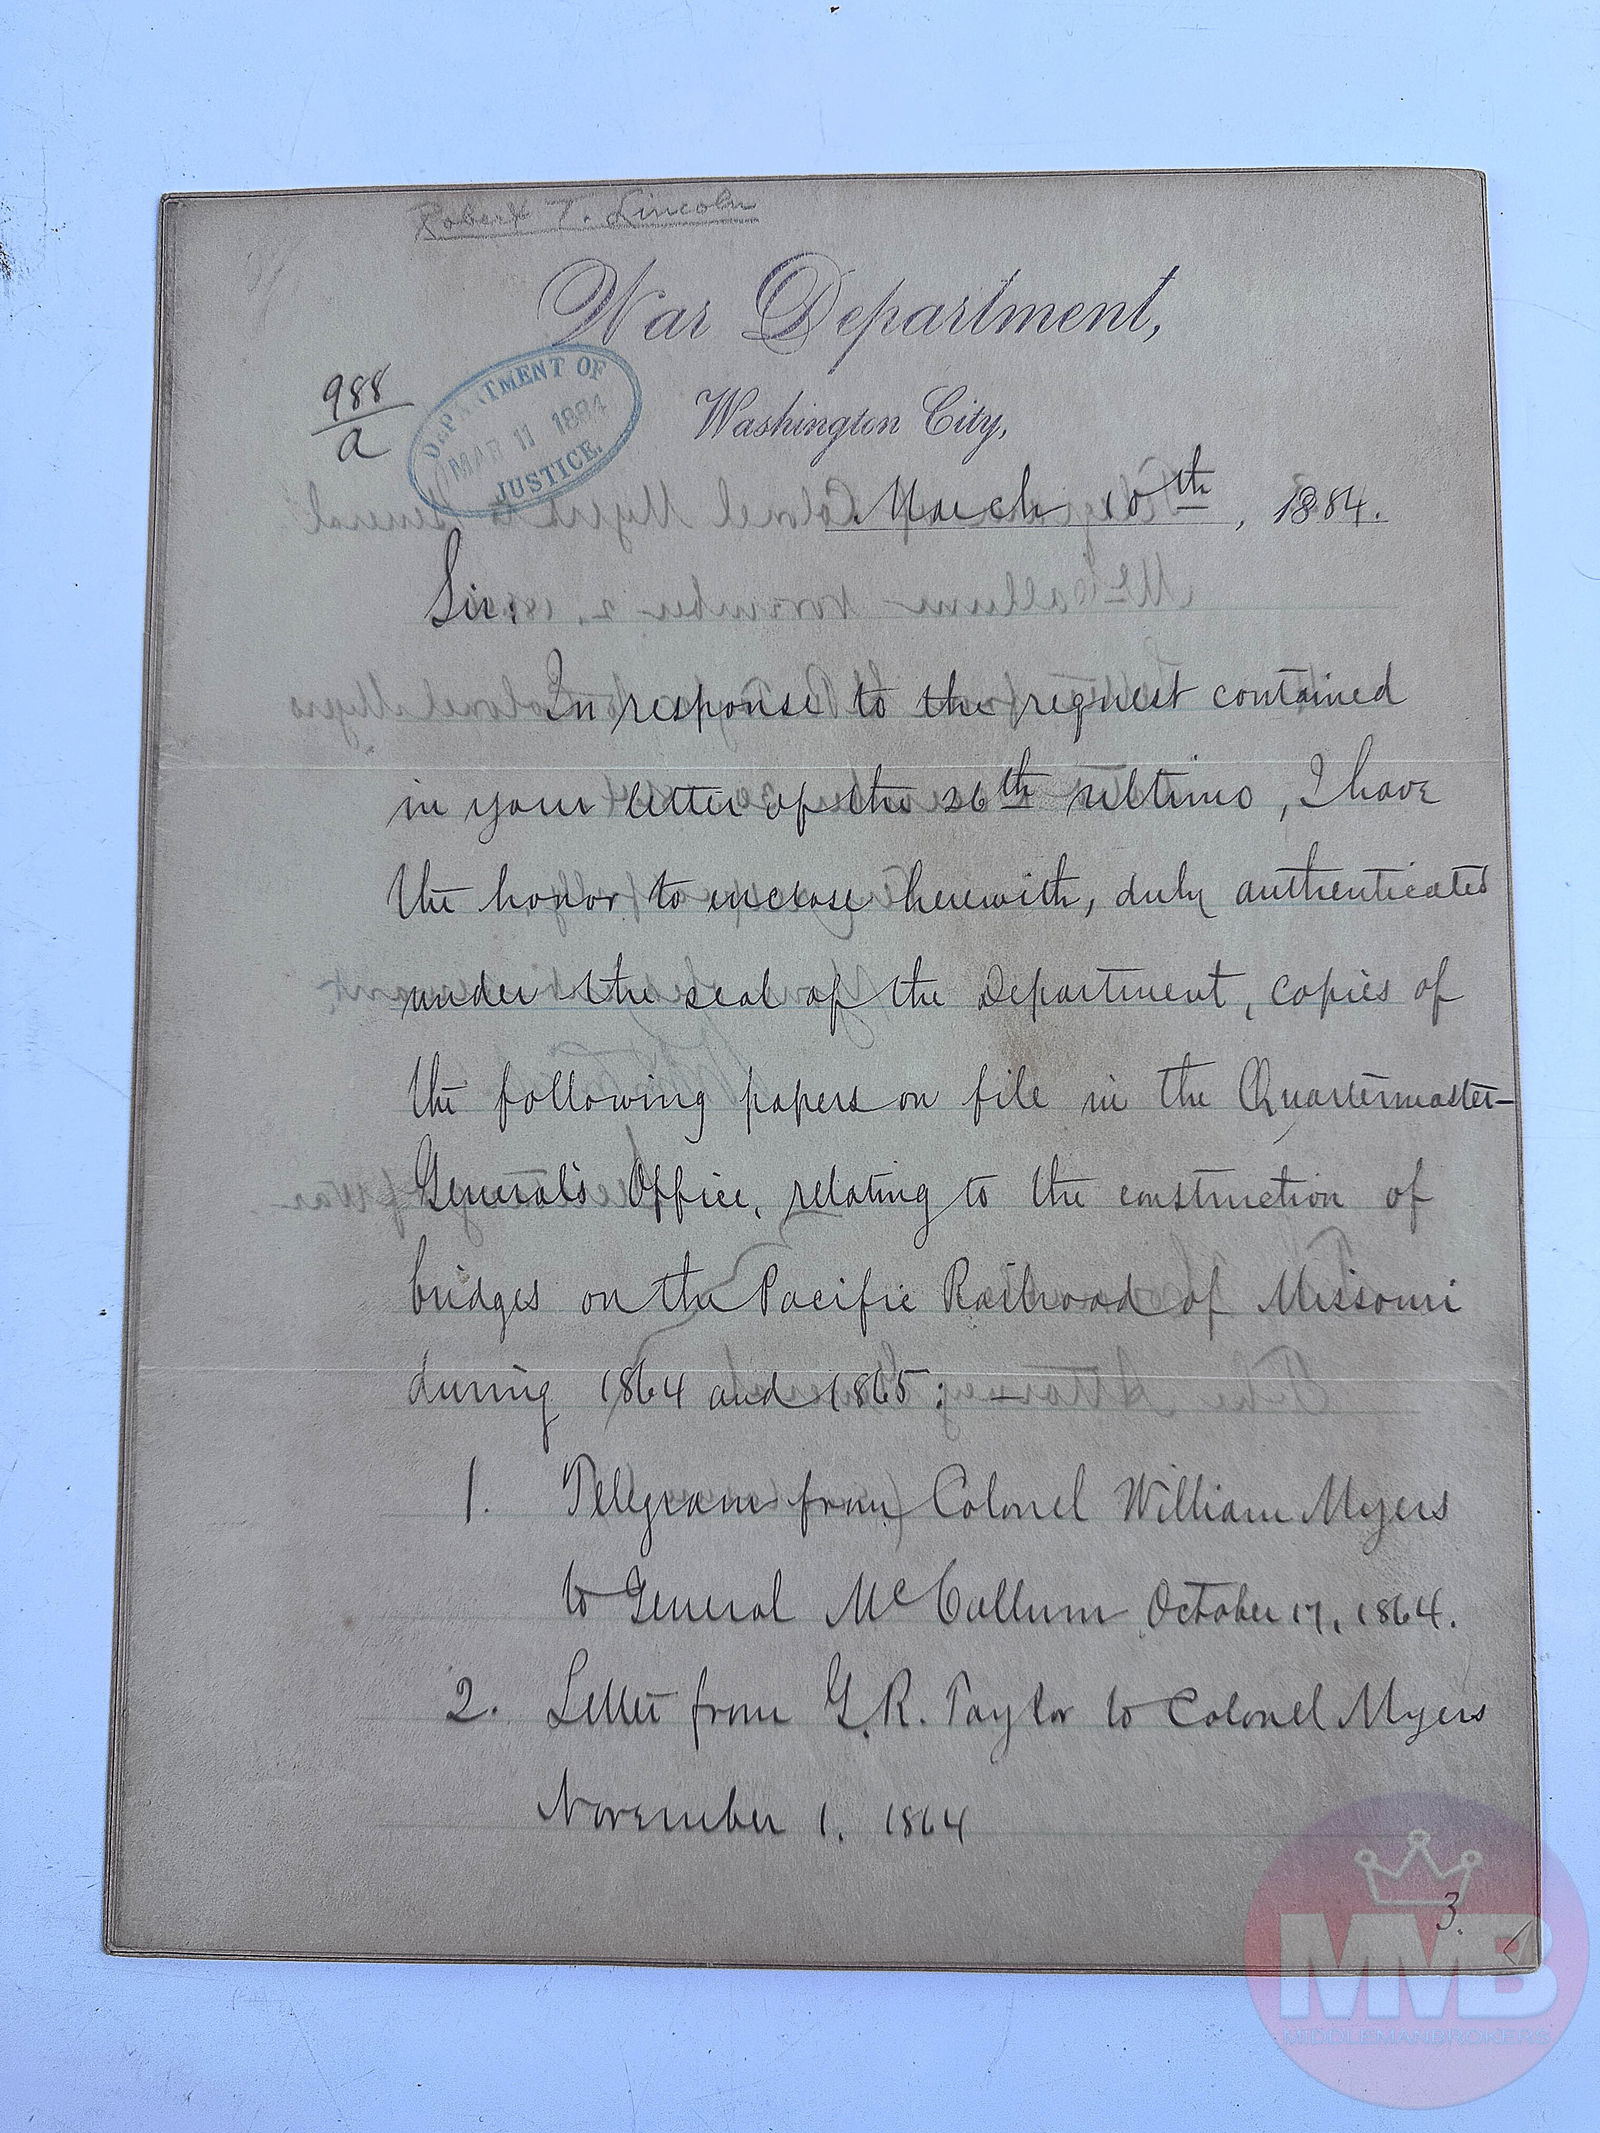 Robert T. Lincoln
War Department,
Washington City,
988
a
DEPARTMENT OF
MAR 11 1884
JUSTICE.
March 10th, 1884.
Sir:
In response to the request contained
in your letter of the 26th ultimo, I have
the honor to enclose herewith, duly authenticated
under the seal of the Department, copies of
the following papers on file in the Quartermaster-
General's Office, relating to the construction of
bridges on the Pacific Railroad of Missouri
during 1864 and 1865: —
1. Telegram from Colonel William Myers
to General McCallum October 17, 1864.
2. Letter from G. R. Taylor to Colonel Myers
November 1. 1864
3.
MMB
MIDDLEMANBROKERS